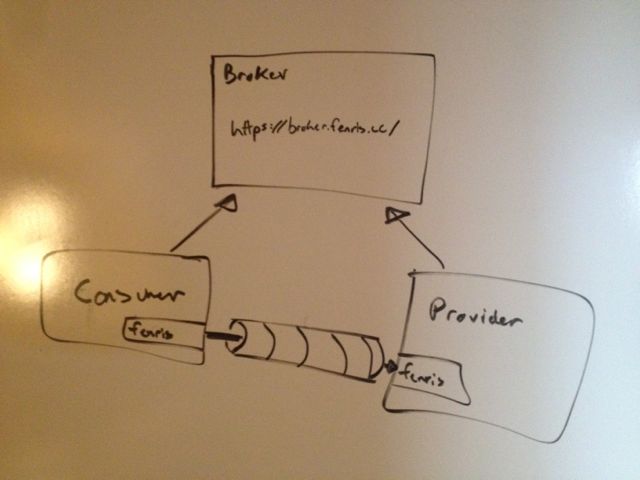 Broker
https://broker.fenris.cc/
Consumer
fenris
Provider
fenris